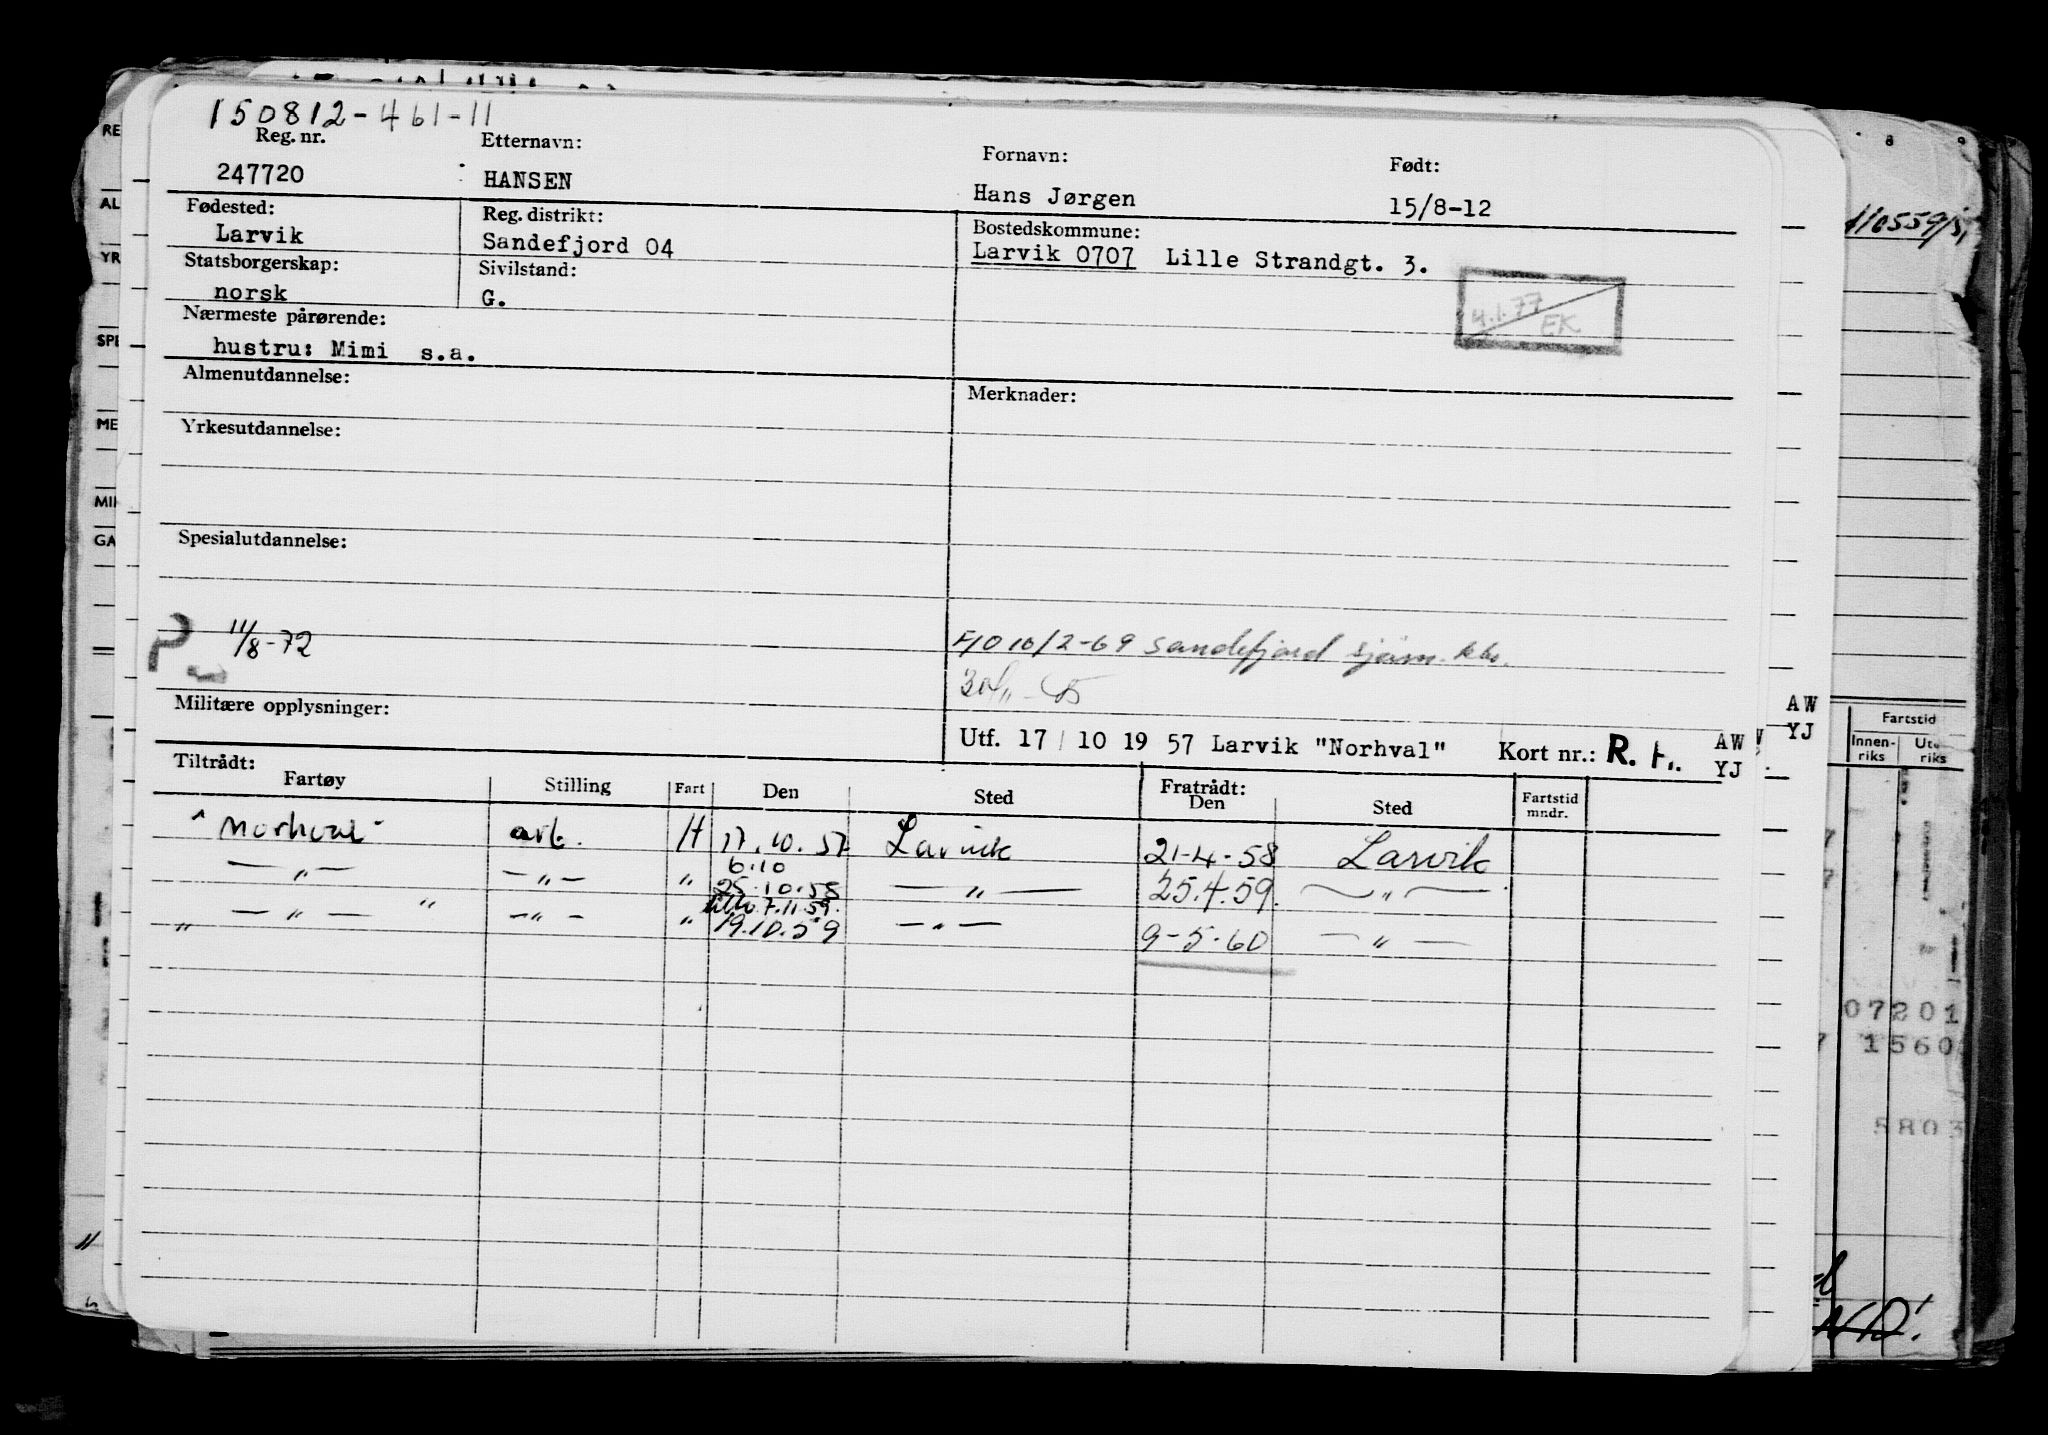 150812-461-11
Reg. nr. Etternavn: Fornavn: Født:
247720 HANSEN Hans Jørgen 15/8-12
Fødested: Reg. distrikt: Bostedskommune:
Larvik Sandefjord 04 Larvik 0707 Lille Strandgt. 3.
Statsborgerskap: Sivilstand:
norsk G.
4.1.77
EK
Nærmeste pårørende:
hustru: Mimi s.a.
Almenutdannelse: Merknader:
Yrkesutdannelse:
Spesialutdannelse:
11/8-72
F/O 10/2-69 Sandefjord sjøm. kto.
Militære opplysninger:
Utf. 17/10 19 57 Larvik "Norhval" Kort nr.: R.
AW
YJ
AW
YJ
Tiltrådt: Fratrådt:
Fartøy Stilling Fart Den Sted Den Sted Fartstid mndr.
"Norhval" arb. H 17.10.57 Larvik 21-4-58 Larvik
6.10
—"— —"— " 25.10.58 — " — 25.4.59. — " —
7.11.59.
" —"— " —"— " 19.10.59 —"— 9-5-60 — " —
RE
AL
YR
SPE
ME
MII
GA
110559/5
Fartstid
Innen-
riks
Ute
riks
07201
1560
5803